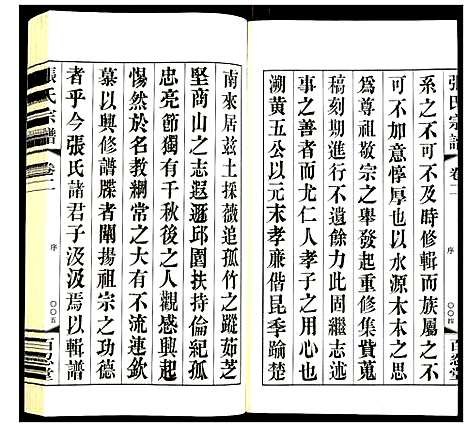 張氏宗譜
卷二
序
〇〇四
百忍堂
系之不可不及時修輯而族屬之
不可不加意惇厚也以水源木本之思
爲尊祖敬宗之舉發起重修集貲蒐
稿刻期進行不遺餘力此固繼志述
事之善者而尤仁人孝子之用心也
溯黃五公以元末孝廉偕昆季踰楚
南來居兹土採薇追孤竹之蹤茹芝
堅商山之志遐遯邱園扶持倫紀孤
忠亮節獨有千秋後之人觀感興起
惕然於名教綱常之大而不流連欽
慕以興修譜牒者闡揚祖宗之功德
者乎今張氏諸君子汲汲焉以輯譜
張氏宗譜
卷二
序
〇〇五
百忍堂